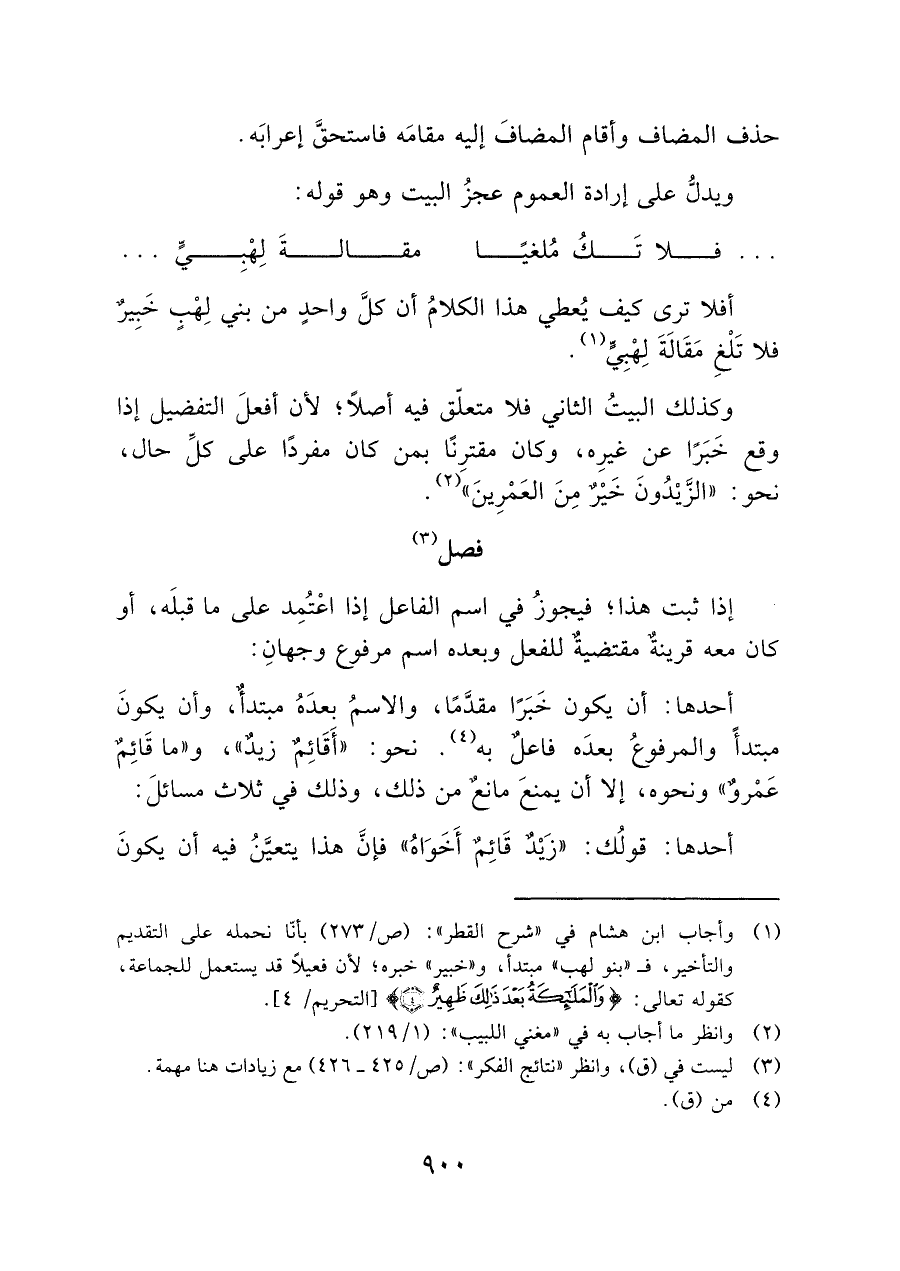 حذف المضاف وأقام المضافَ إليه مقامَه فاستحقَّ إعرابَه.
ويدلُّ على إرادة العموم عجزُ البيت وهو قوله:
... فـــلا تَـــكُ مُلغيًـــا مقـــالـــةَ لِهْبِـــيٍّ ...
أفلا ترى كيف يُعطي هذا الكلامُ أن كلَّ واحدٍ من بني لِهْبٍ خَبِيرٌ
فلا تَلْغِ مَقَالَةَ لِهْبِيٍّ(١).
وكذلك البيتُ الثاني فلا متعلّق فيه أصلاً؛ لأن أفعلَ التفضيل إذا
وقع خَبَرًا عن غيرِه، وكان مقترنًا بمن كان مفردًا على كلِّ حال،
نحو: «الزَّيْدُونَ خَيْرٌ مِنَ العَمْرِينَ»(٢).
فصل(٣)
إذا ثبت هذا؛ فيجوزُ في اسم الفاعل إذا اعْتُمِد على ما قبلَه، أو
كان معه قرينةٌ مقتضيةٌ للفعل وبعده اسم مرفوع وجهانِ:
أحدها: أن يكون خَبَرًا مقدَّمًا، والاسمُ بعدَهُ مبتدأٌ، وأن يكونَ
مبتدأً والمرفوعُ بعدَه فاعلٌ به(٤). نحو: «أَقَائِمٌ زيدٌ»، و«ما قَائِمٌ
عَمْروٌ» ونحوه، إلا أن يمنعَ مانعٌ من ذلك، وذلك في ثلاث مسائلَ:
أحدها: قولُك: «زَيْدٌ قَائِمٌ أَخَوَاهُ» فإنَّ هذا يتعيَّنُ فيه أن يكونَ
(١) وأجاب ابن هشام في «شرح القطر»: (ص/٢٧٣) بأنّا نحمله على التقديم
والتأخير، فـ «بنو لهب» مبتدأ، و«خبير» خبره؛ لأن فعيلاً قد يستعمل للجماعة،
كقوله تعالى: ﴿وَٱلْمَلَـٰٓئِكَةُ بَعْدَ ذَٰلِكَ ظَهِيرٌ ٤﴾ [التحريم/ ٤].
(٢) وانظر ما أجاب به في «مغني اللبيب»: (٢١٩/١).
(٣) ليست في (ق)، وانظر «نتائج الفكر»: (ص/٤٢٥ ـ ٤٢٦) مع زيادات هنا مهمة.
(٤) من (ق).
٩٠٠